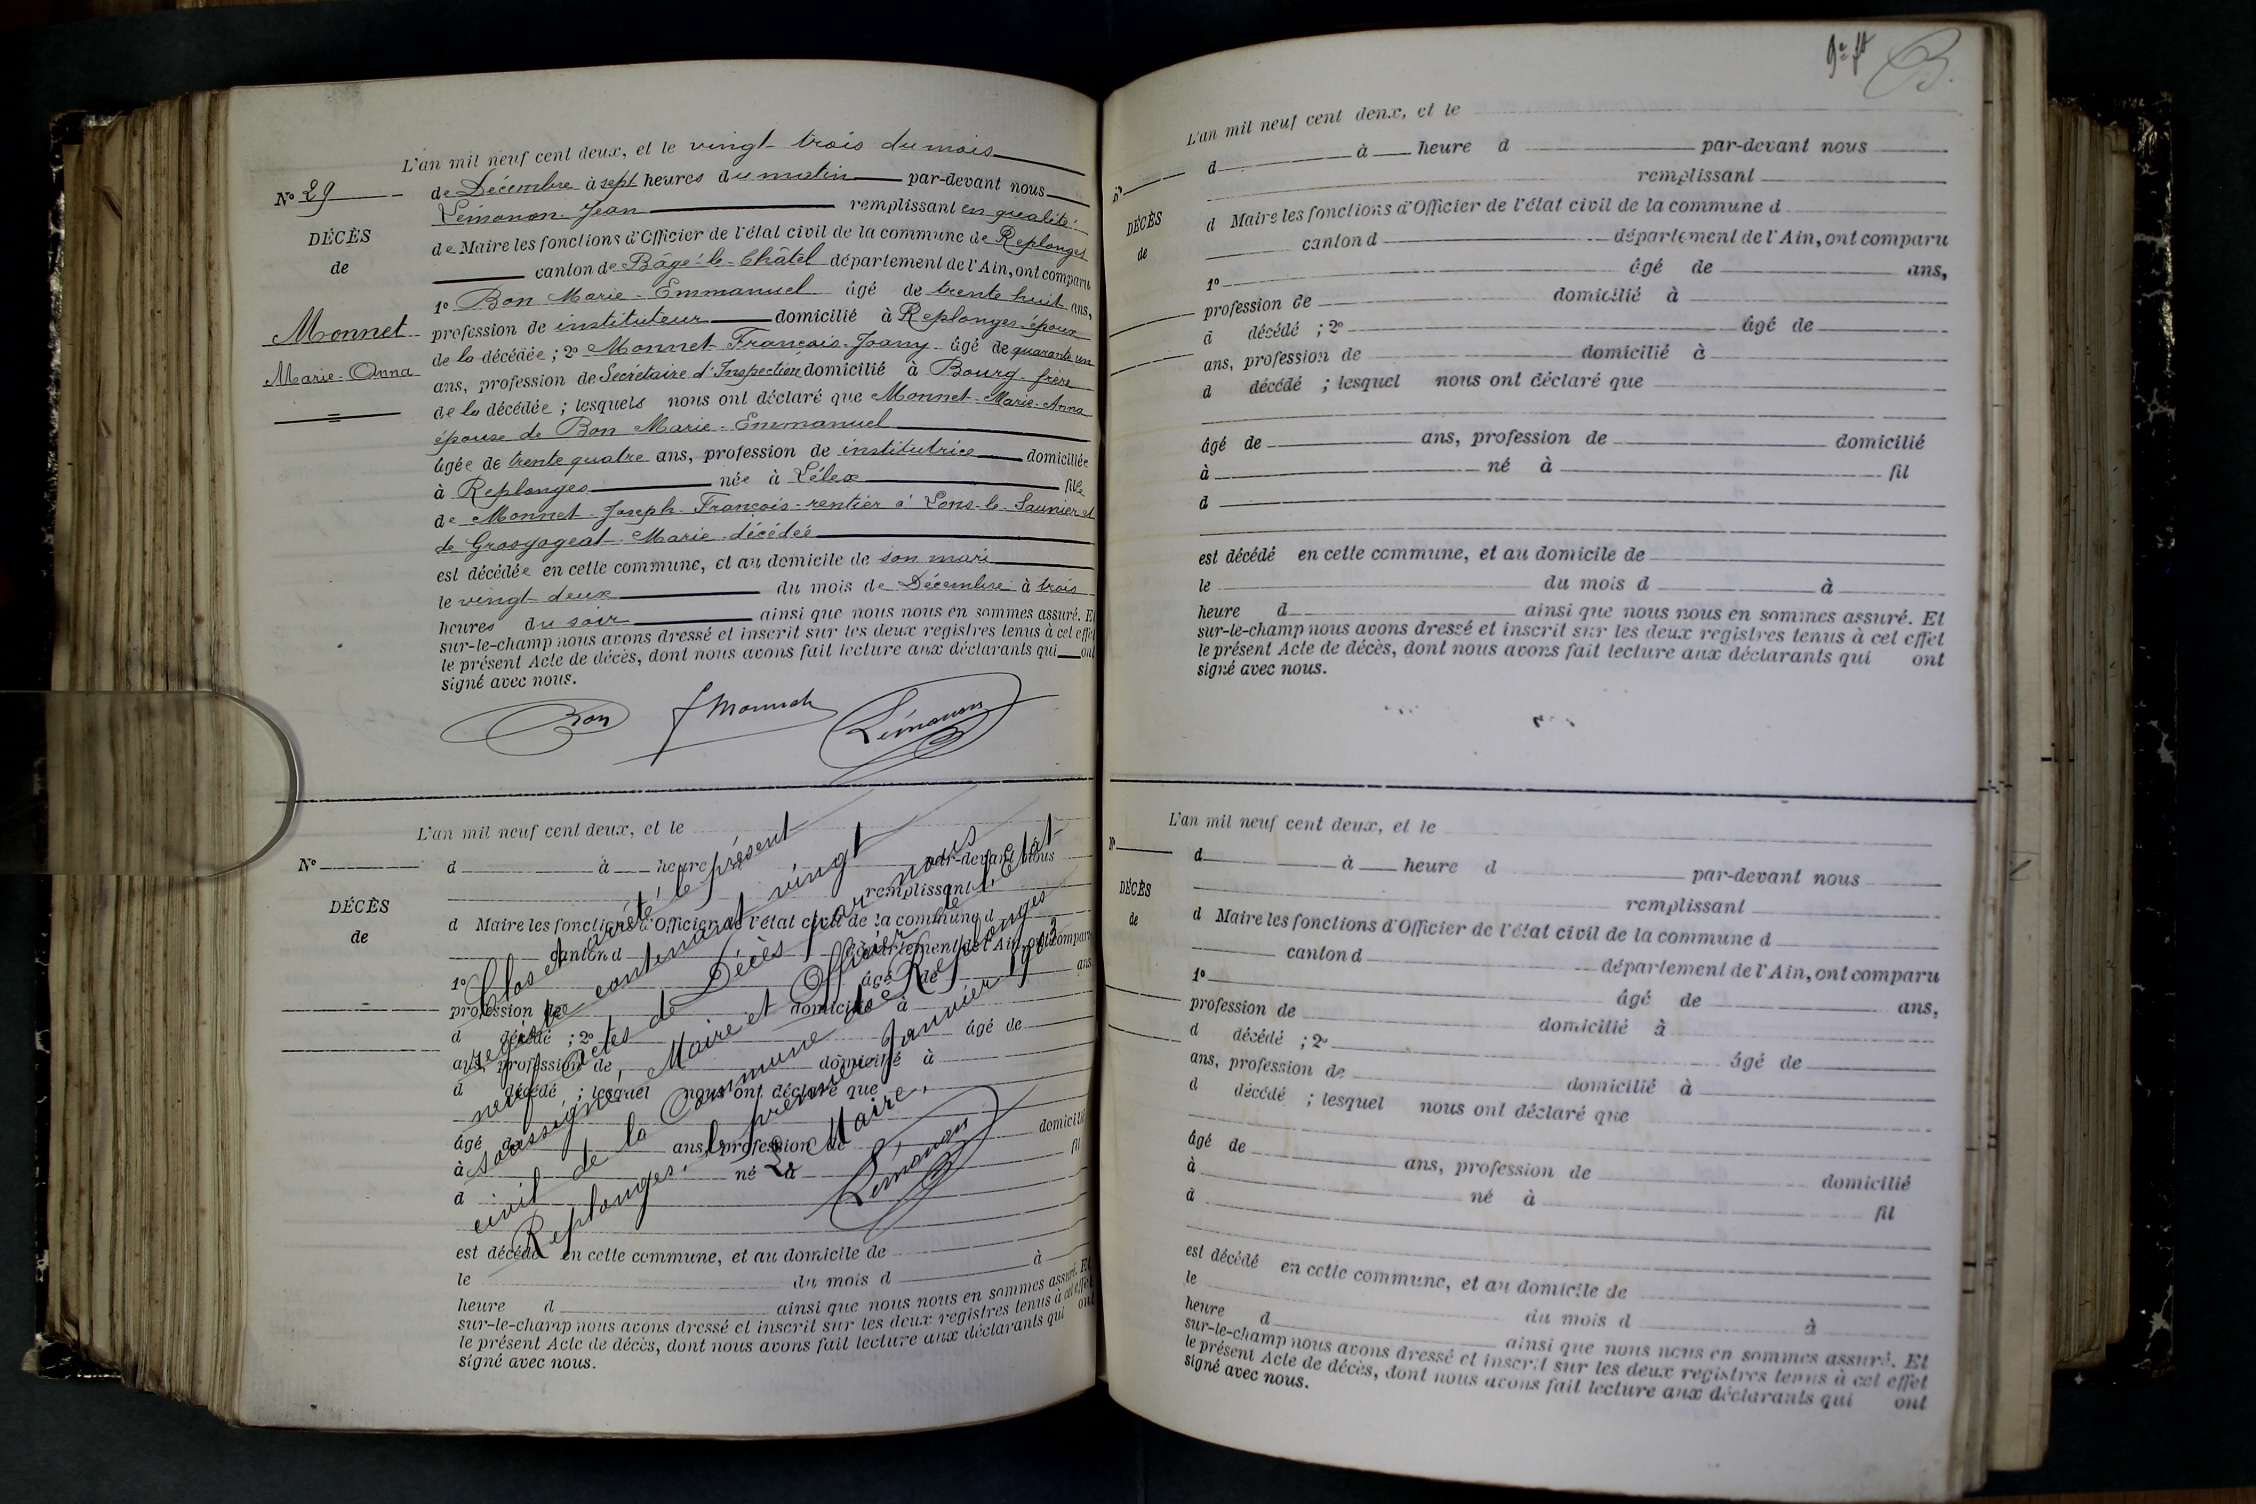 L'an mil neuf cent deux, et le vingt trois du mois
N° 29
de Décembre à sept heures du matin par-devant nous
Lémonon Jean remplissant en qualité
DÉCÈS
de Maire les fonctions d'Officier de l'état civil de la commune de Replonges
de
canton de Bâgé-le-Châtel département de l'Ain, ont comparu
1° Bon Marie-Emmanuel âgé de trente huit ans,
Monnet
profession de instituteur domicilié à Replonges époux
de la décédée ; 2° Monnet François-Joany âgé de quarante un
Marie-Anna
ans, profession de Secrétaire d'Inspection domicilié à Bourg frère
de la décédée ; lesquels nous ont déclaré que Monnet-Marie-Anna
épouse de Bon Marie-Emmanuel
âgée de trente quatre ans, profession de institutrice domiciliée
à Replonges née à Lélex fille
de Monnet-Joseph-François-rentier à Lons-le-Saunier et
de Marie-décédée
est décédée en cette commune, et au domicile de son mari
le vingt deux du mois de Décembre à trois
heures du soir ainsi que nous nous en sommes assuré. Et
sur-le-champ nous avons dressé et inscrit sur les deux registres tenus à cet effet
le présent Acte de décès, dont nous avons fait lecture aux déclarants qui ont
signé avec nous.
Bon
Lémonon
L'an mil neuf cent deux, et le
N°
d à heure par-devant nous
remplissant
DÉCÈS
d Maire les fonctions d'Officier de l'état civil de la commune d
de
canton d département de l'Ain, ont comparu
1° âgé de ans
profession de domicilié à
d décédé ; 2° âgé de
ans, profession de domicilié à
d décédé ; lesquel nous ont déclaré que
âgé de ans, profession de domicilié
à né à fil
d
est décédé en cette commune, et au domicile de
le du mois d à
heure d ainsi que nous nous en sommes assuré. Et
sur-le-champ nous avons dressé et inscrit sur les deux registres tenus à cet effet
le présent Acte de décès, dont nous avons fait lecture aux déclarants qui ont
signé avec nous.
Clos et arrêté le présent
registre contenant vingt
neuf actes de Décès par nous
soussigné, Maire et Officier de l'Etat
civil de la Commune de Replonges
Replonges, le premier Janvier 1903
Le Maire,
Lémonon
B.
L'an mil neuf cent deux, et le
N°
d à heure d par-devant nous
remplissant
DÉCÈS
d Maire les fonctions d'Officier de l'état civil de la commune d
de
canton d département de l'Ain, ont comparu
1° âgé de ans,
profession de domicilié à
d décédé ; 2° âgé de
ans, profession de domicilié à
d décédé ; lesquel nous ont déclaré que
âgé de ans, profession de domicilié
à né à fil
d
est décédé en cette commune, et au domicile de
le du mois d à
heure d ainsi que nous nous en sommes assuré. Et
sur-le-champ nous avons dressé et inscrit sur les deux registres tenus à cet effet
le présent Acte de décès, dont nous avons fait lecture aux déclarants qui ont
signé avec nous.
L'an mil neuf cent deux, et le
N°
d à heure d par-devant nous
remplissant
DÉCÈS
d Maire les fonctions d'Officier de l'état civil de la commune d
de
canton d département de l'Ain, ont comparu
1° âgé de ans,
profession de domicilié à
d décédé ; 2° âgé de
ans, profession de domicilié à
d décédé ; lesquel nous ont déclaré que
âgé de ans, profession de domicilié
à né à fil
d
est décédé en cette commune, et au domicile de
le du mois d à
heure d ainsi que nous nous en sommes assuré. Et
sur-le-champ nous avons dressé et inscrit sur les deux registres tenus à cet effet
le présent Acte de décès, dont nous avons fait lecture aux déclarants qui ont
signé avec nous.